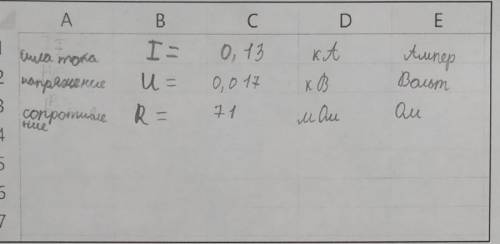 A B C D E
1 сила тока I = 0,13 кА Ампер
2 напряжение U = 0,017 кВ Вольт
3 сопротивле R = 71 мОм Ом
ние
4
5
6
7